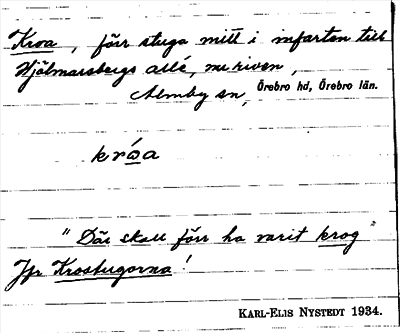 Kroa, förr stuga mitt i infarten till
Hjälmarsbergs allé, nu riven,
Almby sn, Örebro hd, Örebro län.
króa
"Där skall förr ha varit krog"
Jfr Krostugorna!
KARL-ELIS NYSTEDT 1934.